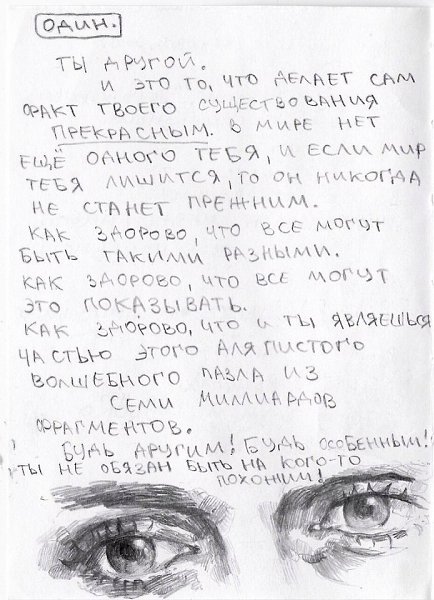 ОДИН.
ТЫ ДРУГОЙ.
И ЭТО ТО, ЧТО ДЕЛАЕТ САМ
ФАКТ ТВОЕГО СУЩЕСТВОВАНИЯ
ПРЕКРАСНЫМ. В МИРЕ НЕТ
ЕЩЁ ОДНОГО ТЕБЯ, И ЕСЛИ МИР
ТЕБЯ ЛИШИТСЯ, ТО ОН НИКОГДА
НЕ СТАНЕТ ПРЕЖНИМ.
КАК ЗДОРОВО, ЧТО ВСЕ МОГУТ
БЫТЬ ТАКИМИ РАЗНЫМИ.
КАК ЗДОРОВО, ЧТО ВСЕ МОГУТ
ЭТО ПОКАЗЫВАТЬ.
КАК ЗДОРОВО, ЧТО И ТЫ ЯВЛЯЕШЬСЯ
ЧАСТЬЮ ЭТОГО АЛЯПИСТОГО
ВОЛШЕБНОГО ПАЗЛА ИЗ
СЕМИ МИЛЛИАРДОВ
ФРАГМЕНТОВ.
БУДЬ ДРУГИМ! БУДЬ ОСОБЕННЫМ!
ТЫ НЕ ОБЯЗАН БЫТЬ НА КОГО-ТО
ПОХОЖИМ!